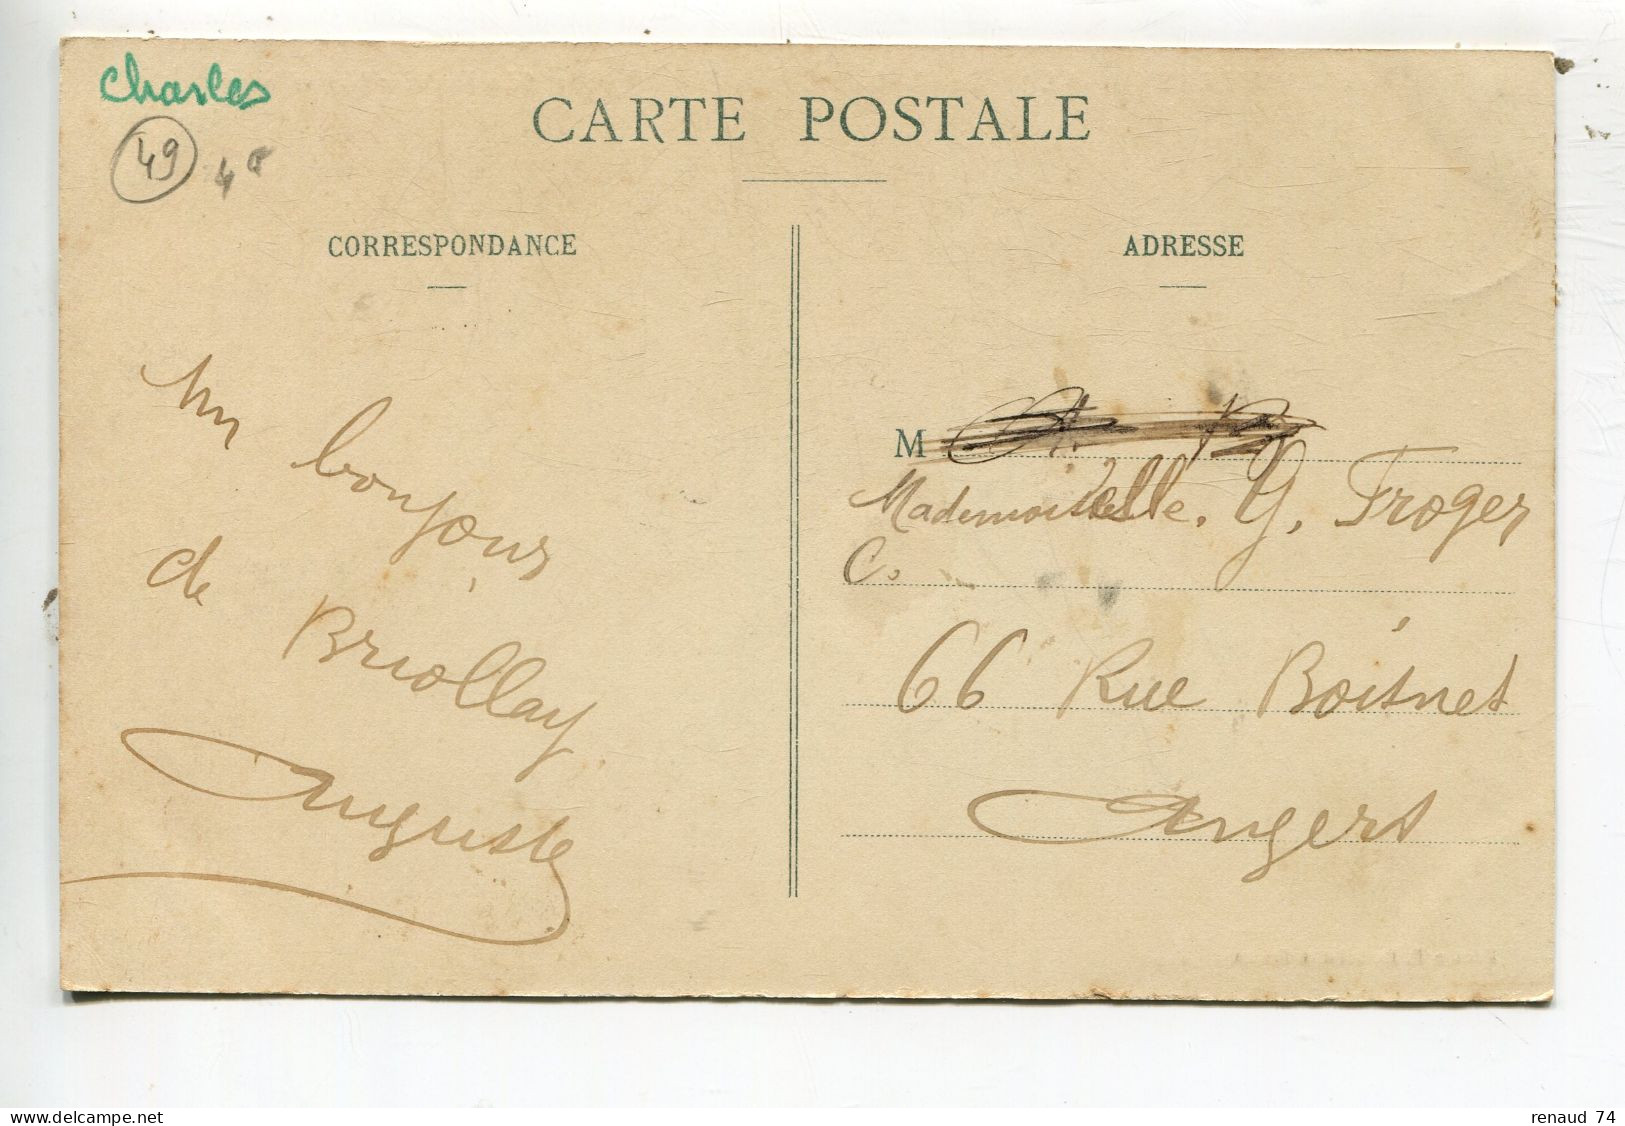 Charles
49
4
CARTE POSTALE
CORRESPONDANCE
Un bonjour
de Briollay
Auguste
ADRESSE
M
Mademoiselle. Y. Froger
C.
66 Rue Boisnet
Angers
www.delcampe.net
renaud 74